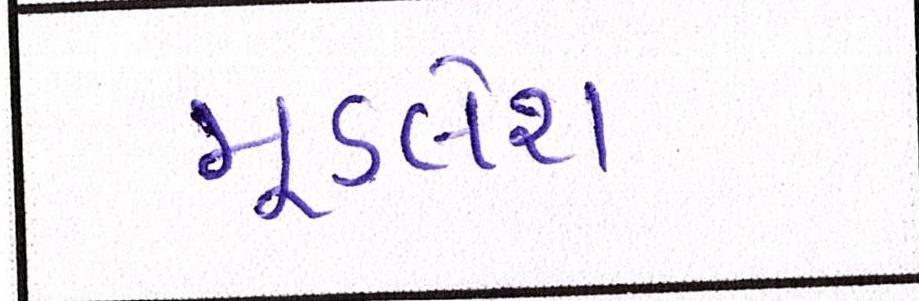 મૂડલેશ